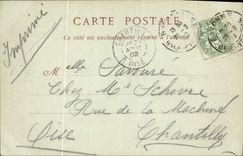 CARTE POSTALE
Ce côté est exclusivement réservé à l'adresse
Imprimé
CHANTILLY
02
OISE
Melle Savouré
Chez Mr Schivre
Rue de la Machine
Oise Chantilly